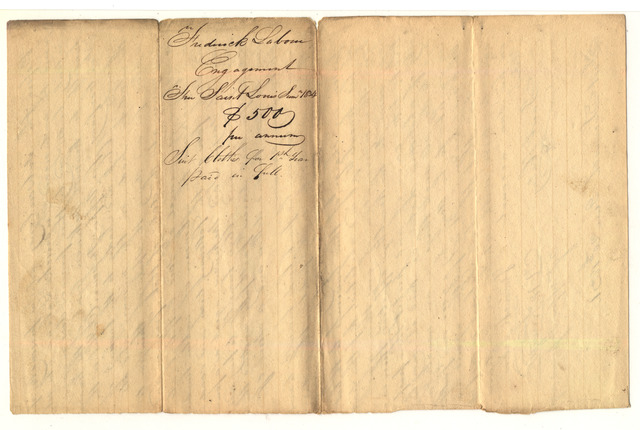 Frederick Labour
Engagement
Saint Louis
$ 500
per annum
Suit Clothes for 1st Year
paid in full.